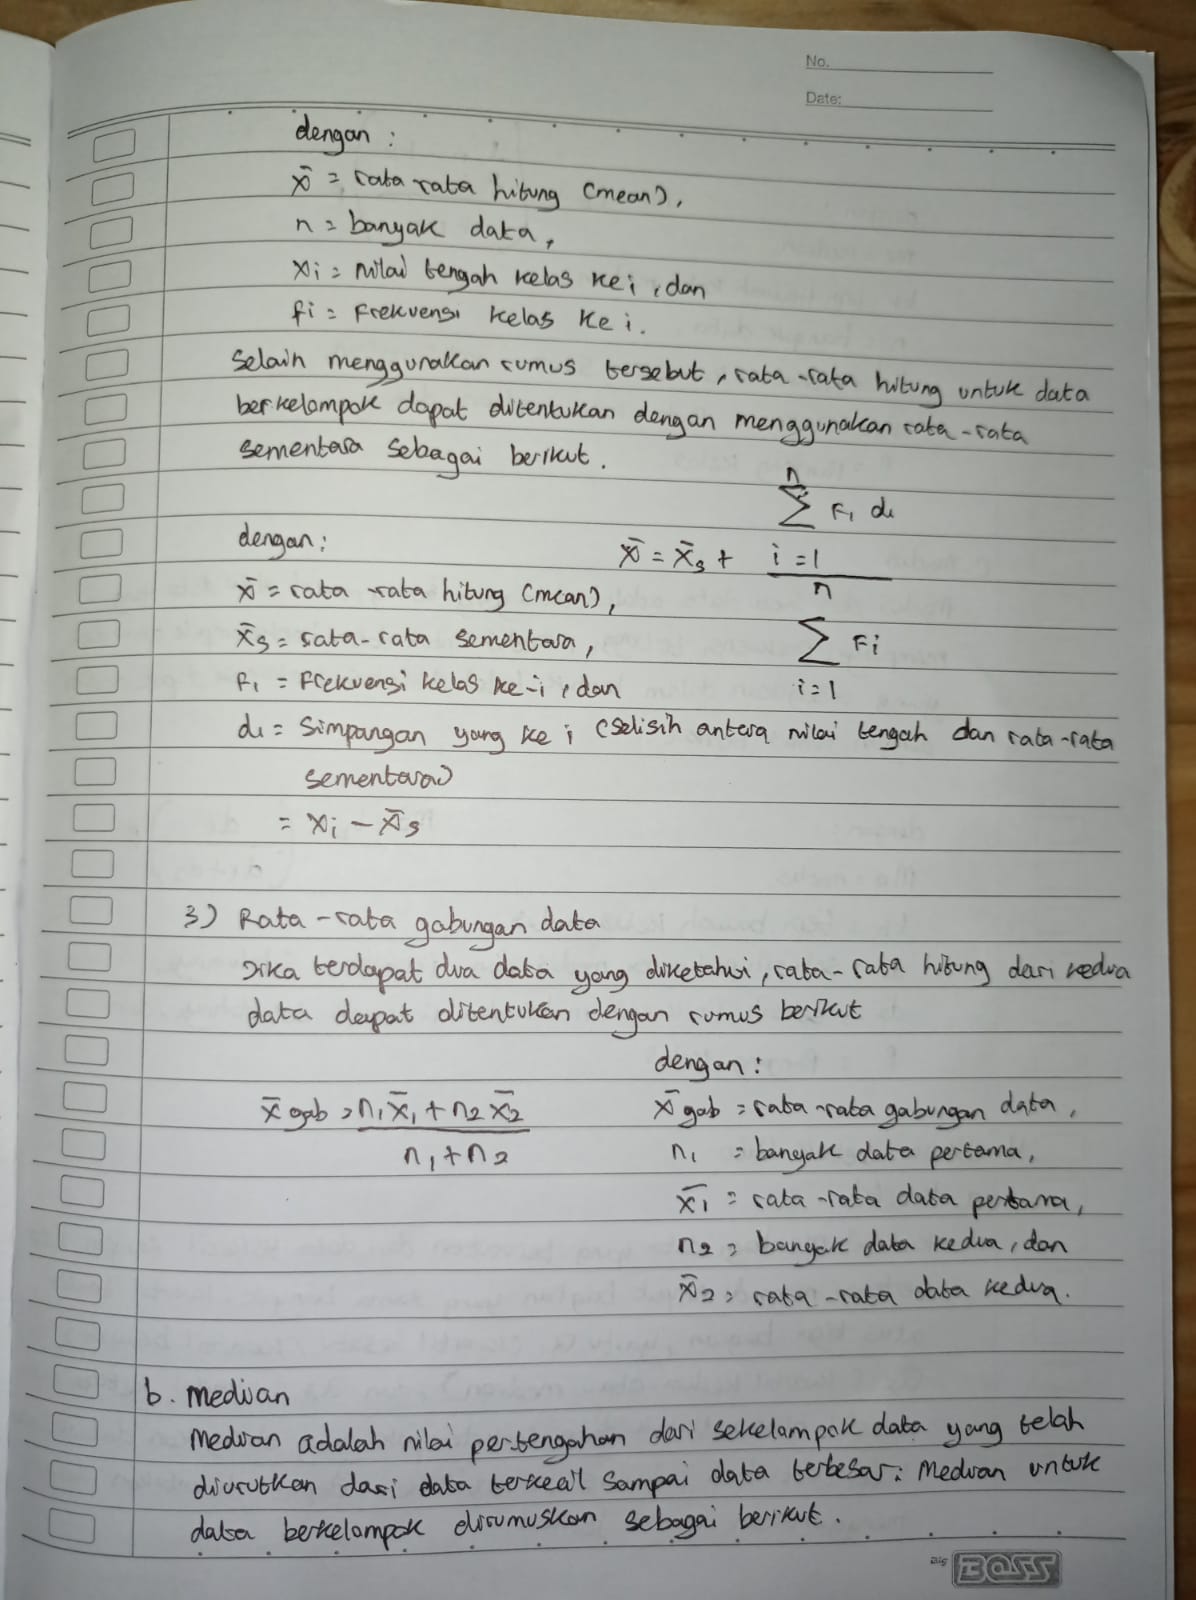 No.
Date:
dengan :
x̄ = rata rata hitung (mean),
n = banyak data,
xi = nilai tengah kelas ke i, dan
fi = Frekuensi kelas ke i.
Selain menggunakan rumus tersebut, rata-rata hitung untuk data
berkelompok dapat ditentukan dengan menggunakan rata-rata
sementara sebagai berikut.
n
∑ Fi di
dengan: x̄ = x̄s + i=1
n
x̄ = rata-rata hitung (mean),
x̄s = rata-rata sementara, ∑ Fi
Fi = Frekuensi kelas ke-i, dan i=1
di = Simpangan yang ke i (Selisih antara nilai tengah dan rata-rata
sementara)
= xi - x̄s
3) Rata-rata gabungan data
Jika terdapat dua data yang diketahui, rata-rata hitung dari kedua
data dapat ditentukan dengan rumus berikut
dengan:
x̄ gab = n₁x̄₁ + n₂x̄₂ x̄ gab = rata-rata gabungan data,
n₁ + n₂ n₁ = banyak data pertama,
x̄₁ = rata-rata data pertama,
n₂ = banyak data kedua, dan
x̄₂ = rata-rata data kedua.
b. Median
Median adalah nilai pertengahan dari sekelompok data yang telah
diurutkan dari data terkecil sampai data terbesar. Median untuk
data berkelompok dirumuskan sebagai berikut.
Big BOSS